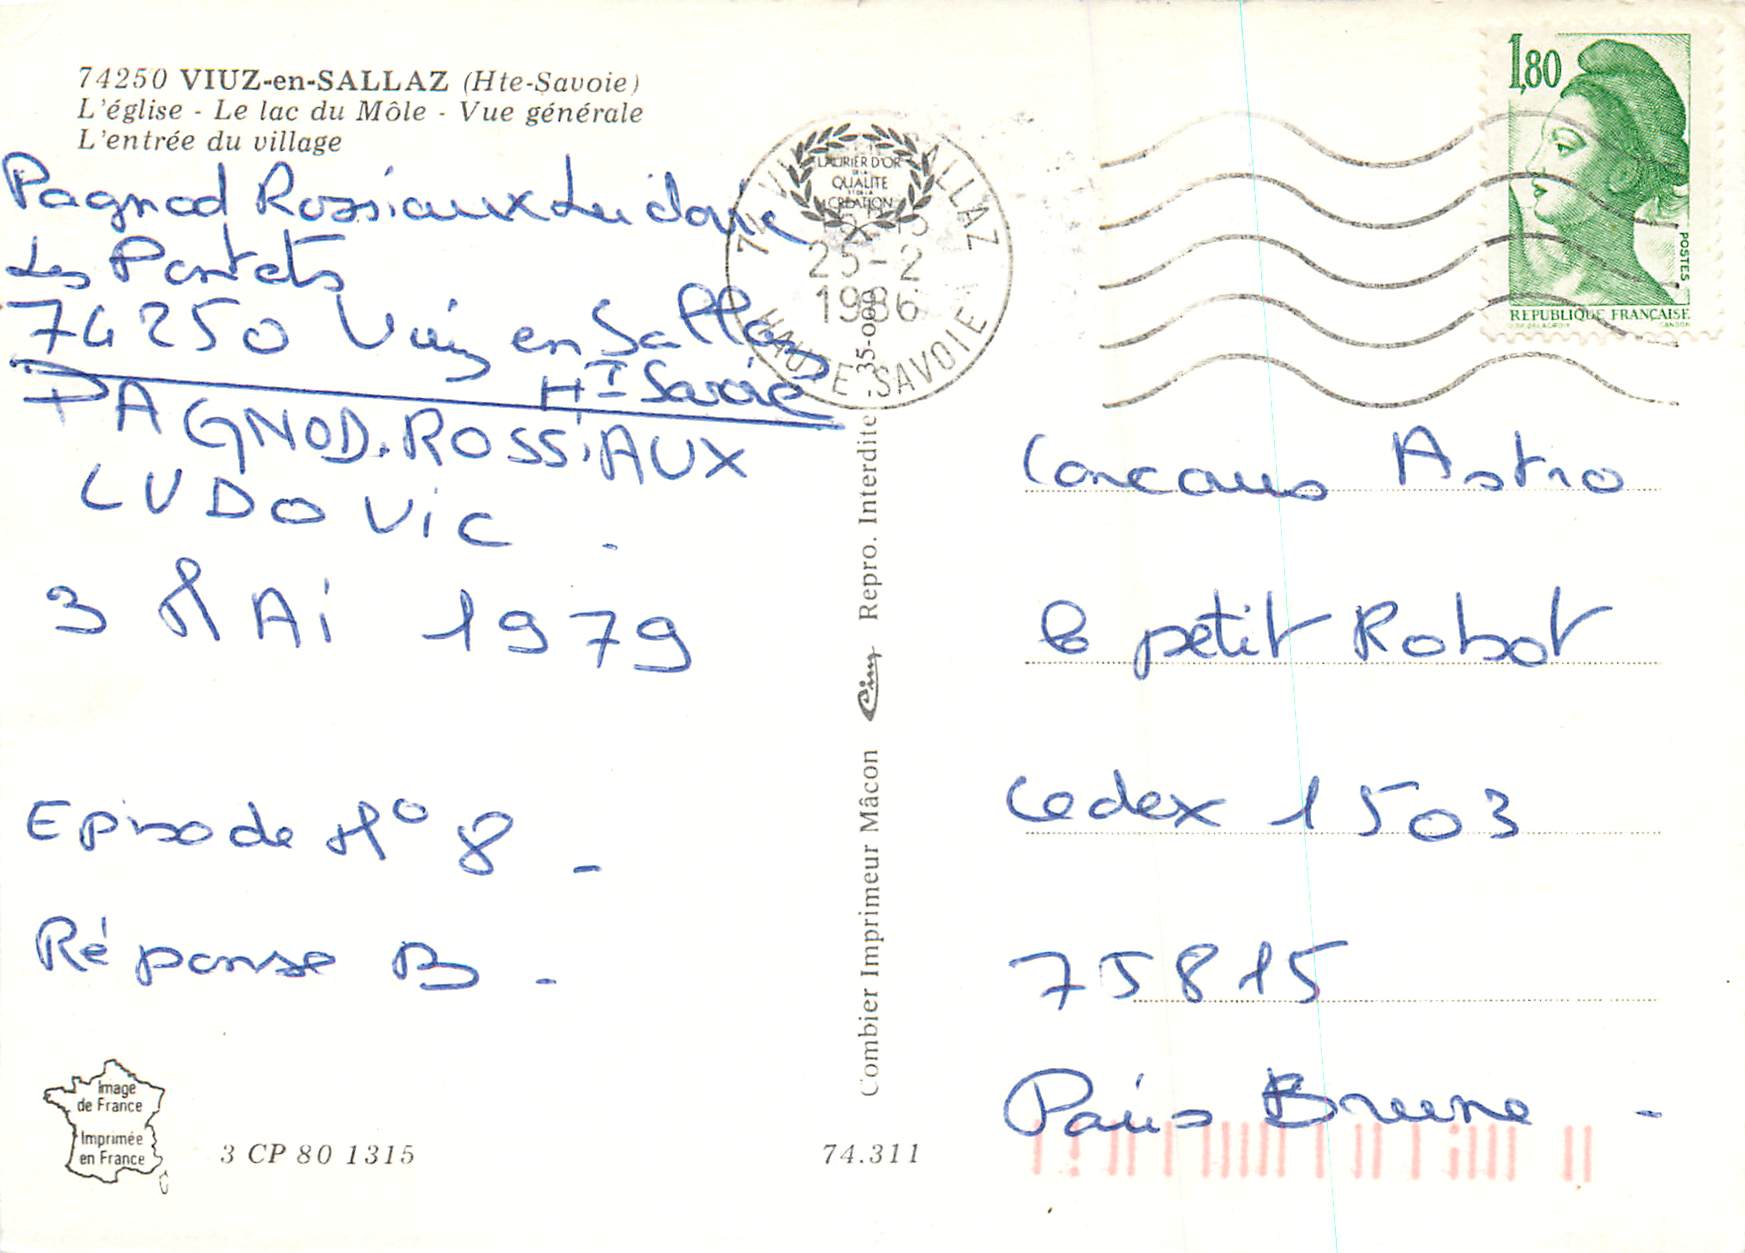 74250 VIUZ-en-SALLAZ (Hte-Savoie)
L'église - Le lac du Môle - Vue générale
L'entrée du village
Pagnod Rossiaux Ludovic
Les Portets
74250 Viuz en Sallaz
HT Savoie
PAGNOD.ROSSiAUX
LUDOViC.
3 MAi 1979
Episode N° 8 -
Réponse B -
Image
de France
Imprimée
en France
3 CP 80 1315
74.311
Combier Imprimeur Mâcon Cim Repro. Interdite
LAURIER D'OR
DE LA
QUALITE
ET DE LA
CREATION
25-2
1986
HAUTE-SAVOIE
1,80
POSTES
REPUBLIQUE FRANÇAISE
Concours Astro
le petit Robot
Cedex 1503
75815
Paris Brune -